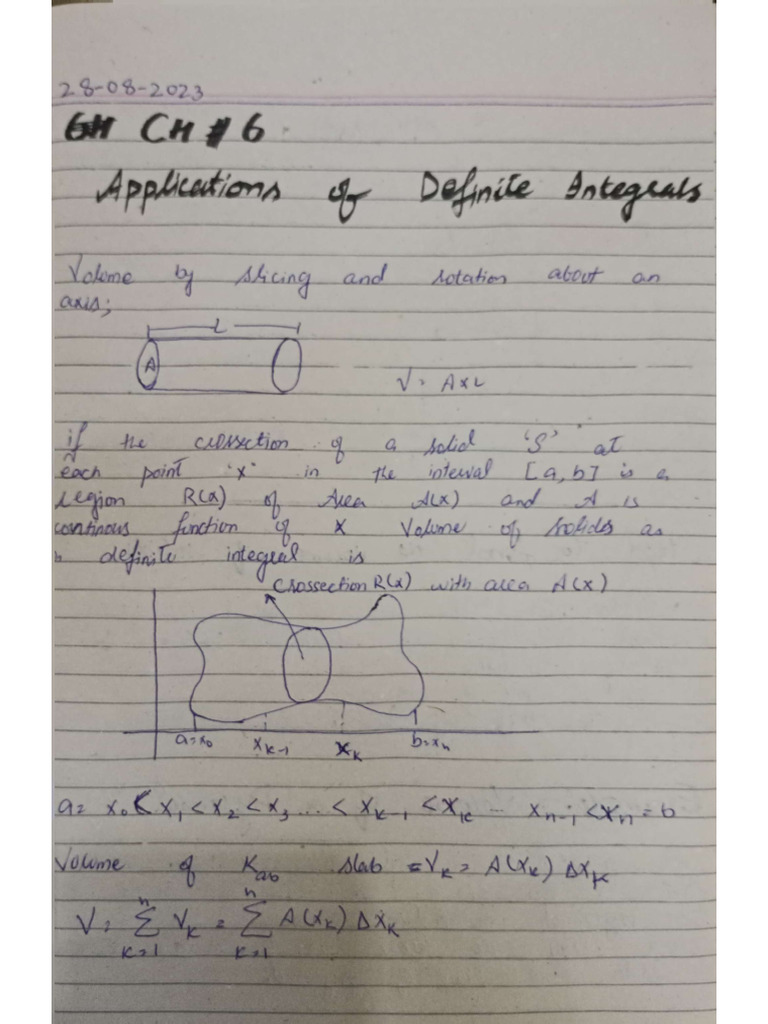 28-08-2023
CH # 6
Applications of Definite Integrals
Volume by slicing and rotation about an
axis;
L
A
V = A×L
if the crossection of a solid 'S' at
each point 'x' in the interval [a, b] is a
region R(x) of Area A(x) and A is
continous function of x Volume of solids as
definite integral is
crossection R(x) with area A(x)
a=x₀ xₖ₋₁ xₖ b=xₙ
a= x₀ < x₁ < x₂ < x₃ ... < xₖ₋₁ < xₖ ... xₙ₋₁ < xₙ = b
Volume of slab = Vₖ = A(xₖ) Δxₖ
V = ⁿΣₖ₌₁ Vₖ = ⁿΣₖ₌₁ A(xₖ) Δxₖ